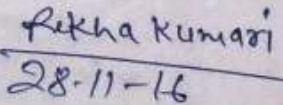 Rekha Kumari
28-11-16